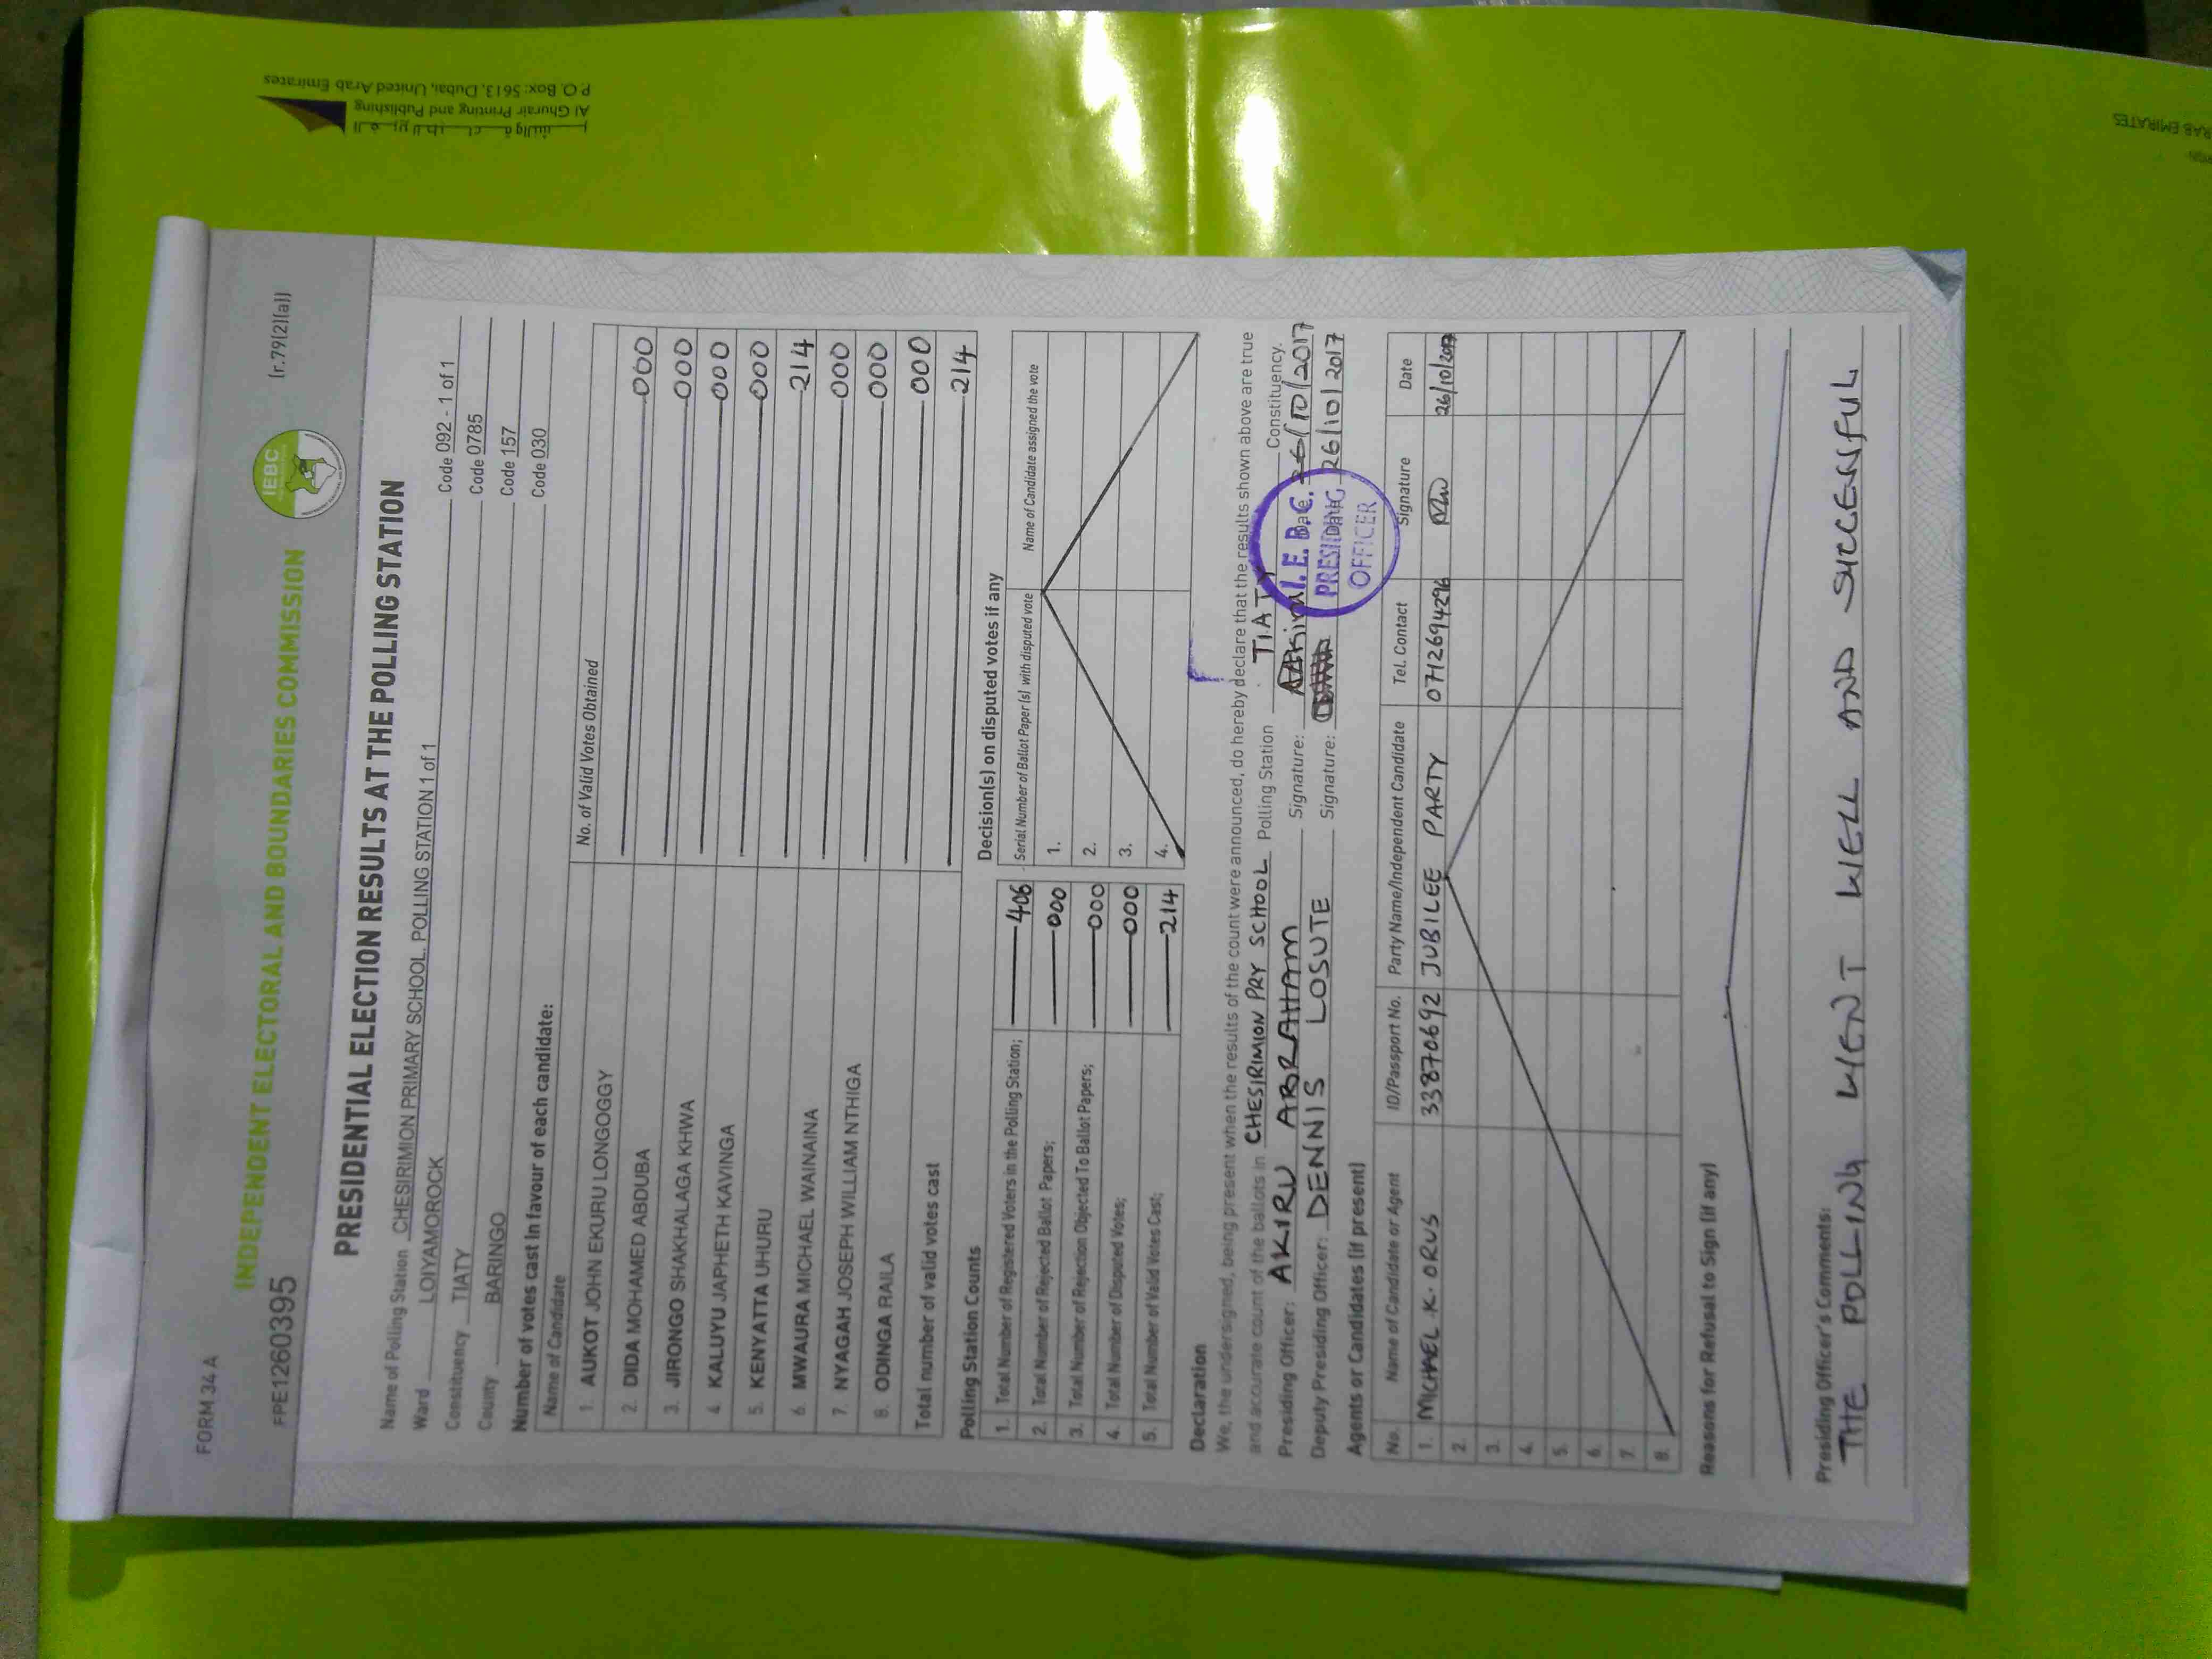 FORM 34 A
FPE1260395
INDEPENDENT ELECTORAL AND BOUNDARIES COMMISSION
IEBC
(r.79(2)(a))
PRESIDENTIAL ELECTION RESULTS AT THE POLLING STATION
Name of Polling Station CHESIRIMION PRIMARY SCHOOL, POLLING STATION 1 of 1 Code 092 - 1 of 1
Ward LOIYAMOROCK Code 0785
Constituency TIATY Code 157
County BARINGO Code 030
Number of votes cast in favour of each candidate:
Name of Candidate No. of Valid Votes Obtained
1. AUKOT JOHN EKURU LONGOGGY 000
2. DIDA MOHAMED ABDUBA 000
3. JIRONGO SHAKHALAGA KHWA 000
4. KALUYU JAPHETH KAVINGA 000
5. KENYATTA UHURU 214
6. MWAURA MICHAEL WAINAINA 000
7. NYAGAH JOSEPH WILLIAM NTHIGA 000
8. ODINGA RAILA 000
Total number of valid votes cast 214
Polling Station Counts
1. Total Number of Registered Voters in the Polling Station; 406
2. Total Number of Rejected Ballot Papers; 000
3. Total Number of Rejection Objected To Ballot Papers; 000
4. Total Number of Disputed Votes; 000
5. Total Number of Valid Votes Cast; 214
Decision(s) on disputed votes if any
Serial Number of Ballot Paper (s) with disputed vote Name of Candidate assigned the vote
1.
2.
3.
4.
Declaration
We, the undersigned, being present when the results of the count were announced, do hereby declare that the results shown above are true
and accurate count of the ballots in CHESIRIMION PRY SCHOOL Polling Station TIATY Constituency.
Presiding Officer: AKIRU ABRAHAM Signature: Date 26/10/2017
Deputy Presiding Officer: DENNIS LOSUTE Signature: Date 26/10/2017
I.E.B.C.
PRESIDING
OFFICER
Agents or Candidates (if present)
No. Name of Candidate or Agent ID/Passport No. Party Name/Independent Candidate Tel. Contact Signature Date
1. MICHAEL K. ORUS 33870692 JUBILEE PARTY 0712694296 26/10/2017
2.
3.
4.
5.
6.
7.
8.
Reasons for Refusal to Sign (if any)
Presiding Officer's Comments:
THE POLLING WENT WELL AND SUCCENFUL
Al Ghurair Printing and Publishing
P.O. Box: 5613, Dubai, United Arab Emirates
RAB EMIRATES